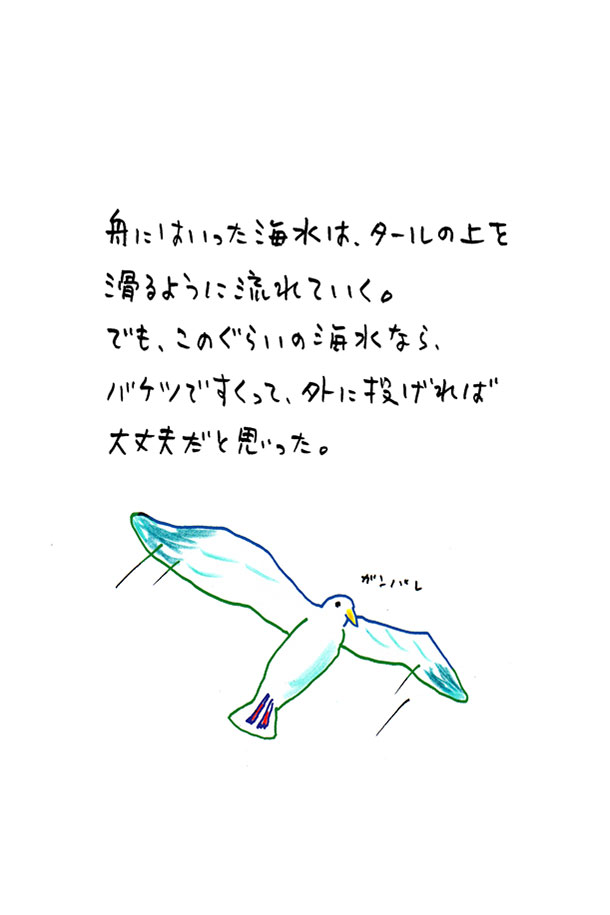 舟にはいった海水は、タールの上を
滑るように流れていく。
でも、このぐらいの海水なら、
バケツですくって、外に投げれば
大丈夫だと思った。
ガンバレ